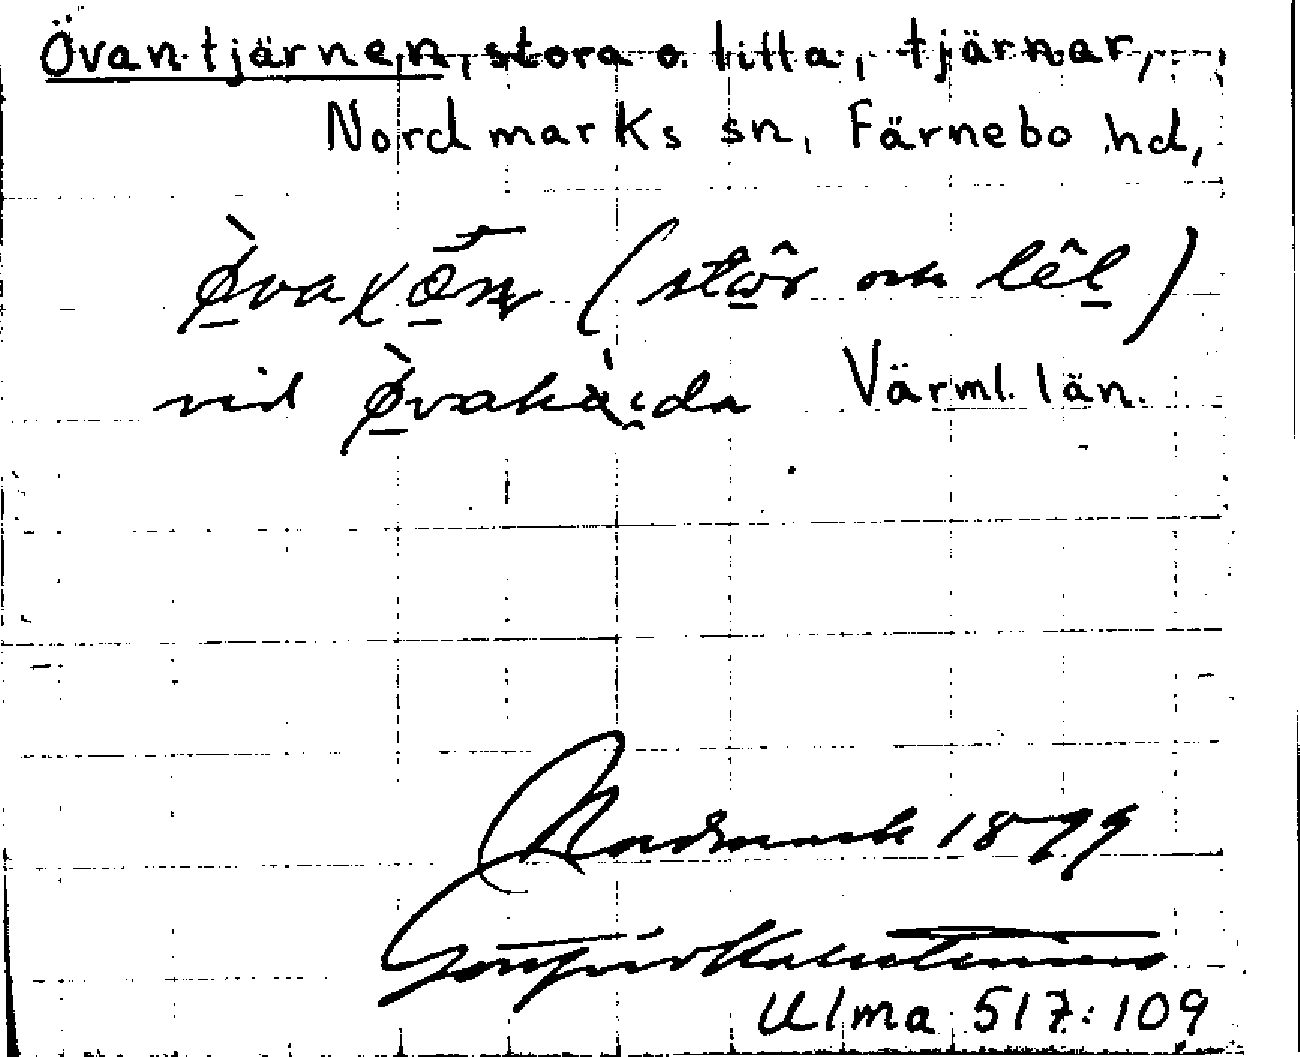 Övantjärnen, stora o. lilla, tjärnar,
Nordmarks sn, Färnebo hd,
(stώr och lêl)
vid Värml. län.
Nordmark 1899
Ulma 517:109